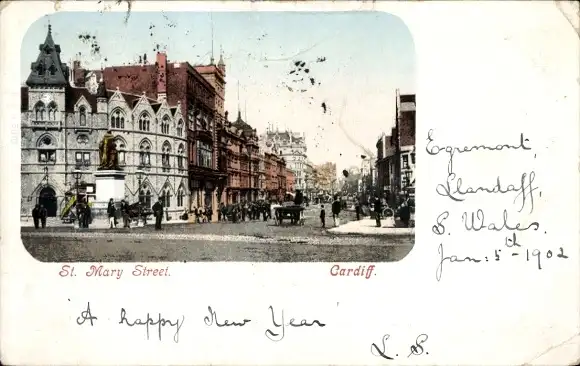 Egremont,
Llandaff,
S. Wales.
Jan: 5th - 1902
St. Mary Street.
Cardiff.
'A happy New Year'
L. S.